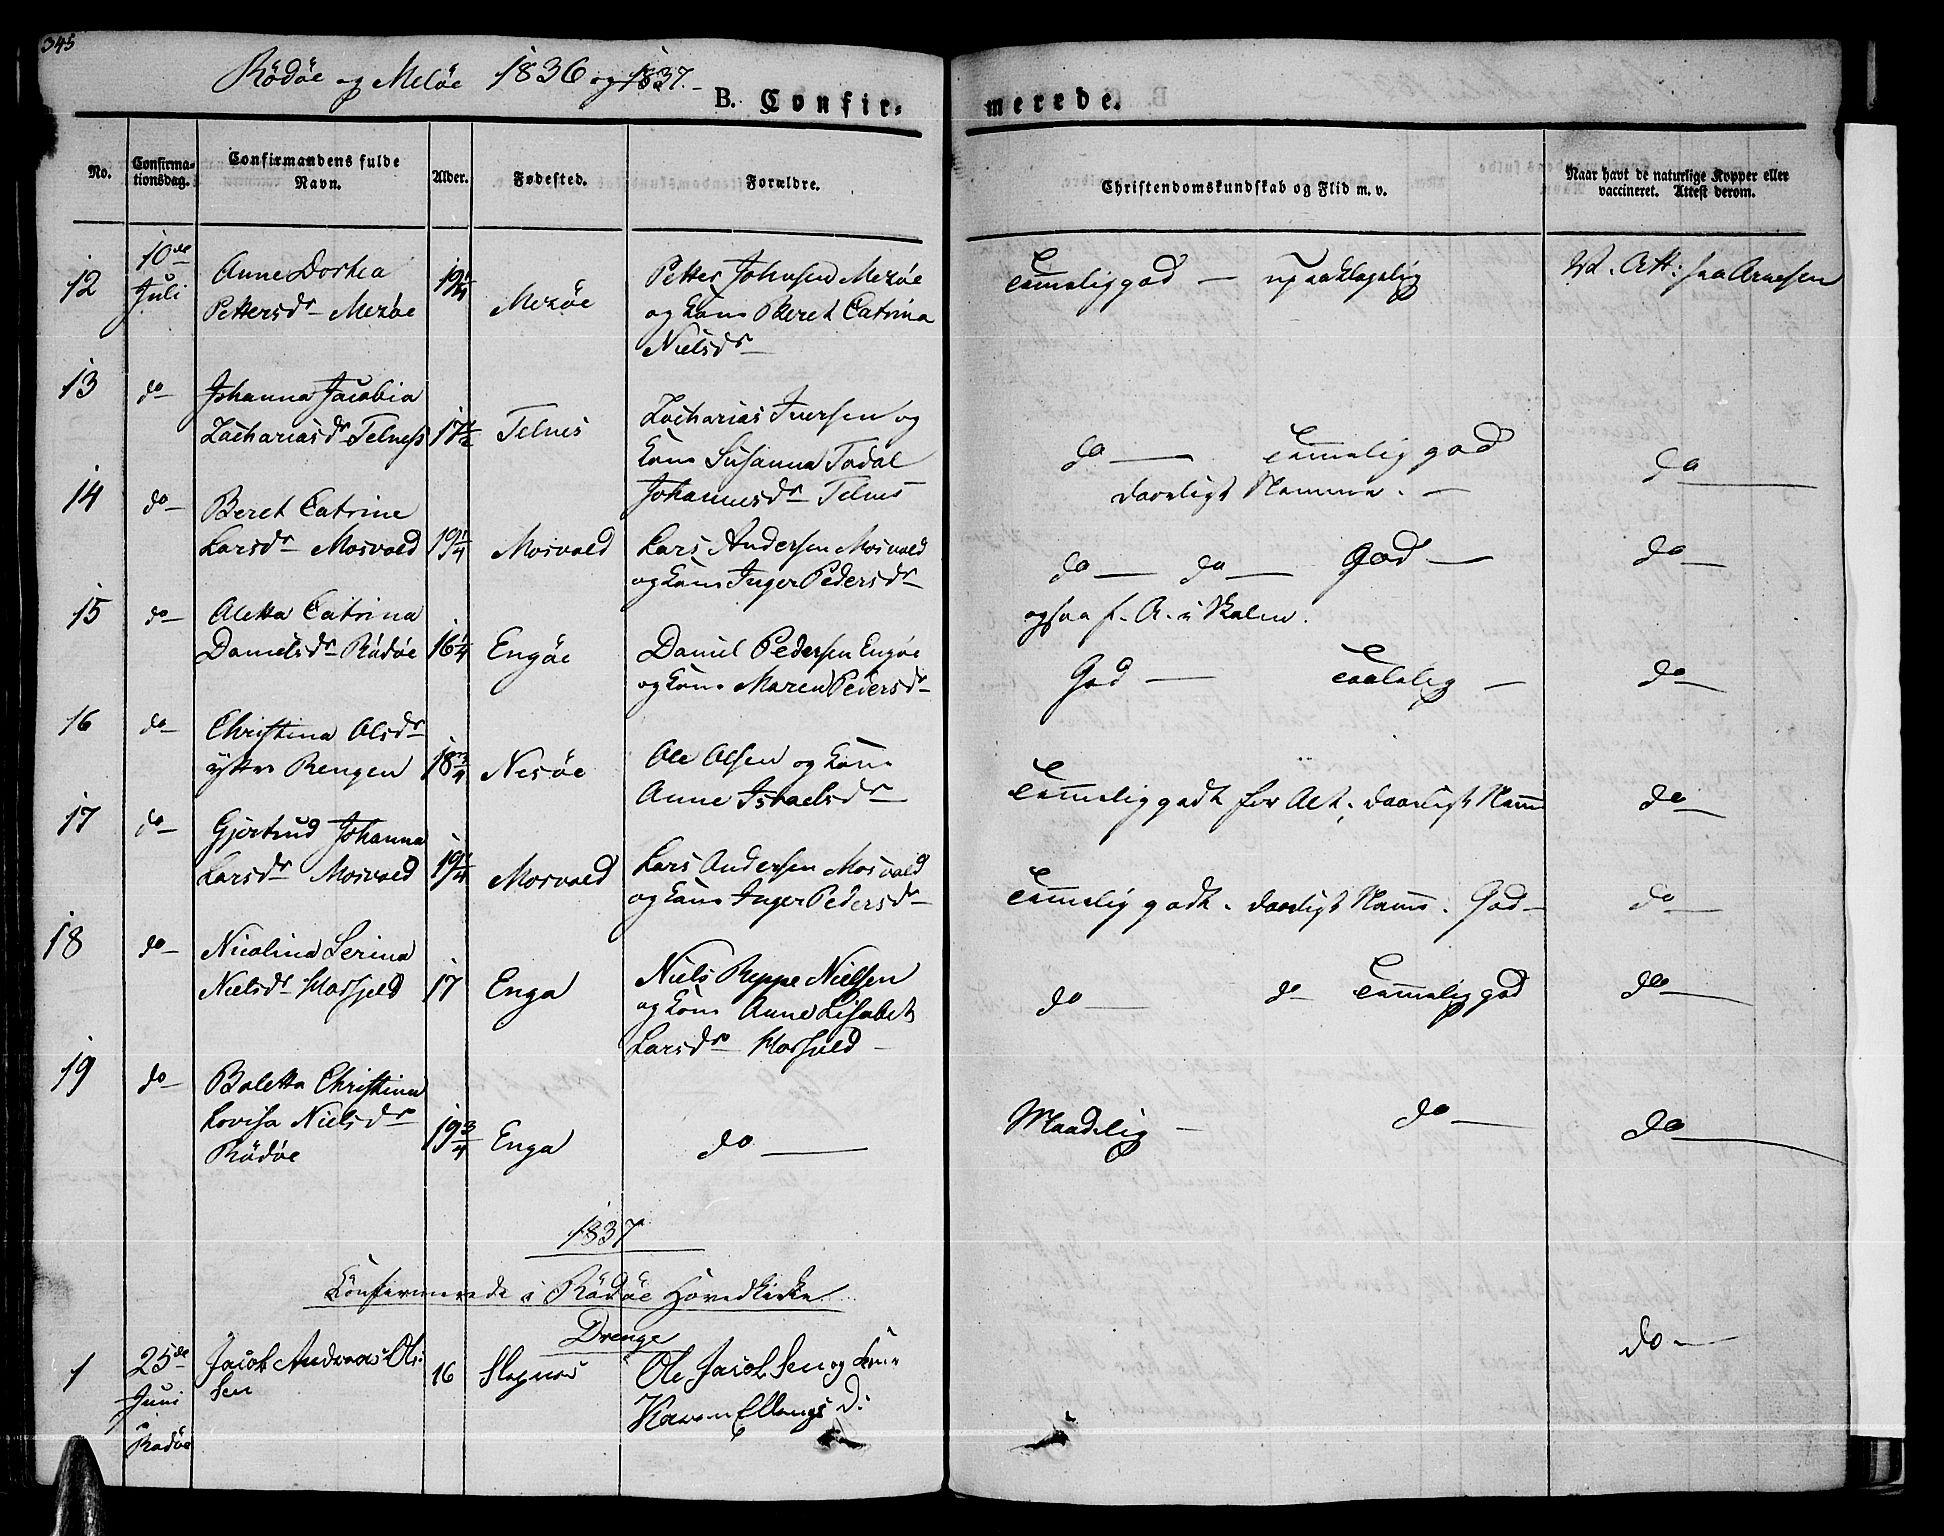 345
Rödöe og Melöe 1836 og 1837.
B. Confir-
merede.
No.
Confirma-
tionsdag.
Confirmandens fulde
Navn.
Alder.
Fødested.
Forældre.
Christendomskundskab og Flid m. v.
Naar havt de naturlige Kopper eller
vaccineret. Attest derom.
12
10de
Juli
Anne Dorthea
Pettersdr Mezöe
19 1/4
Mezöe
Petter Johnsen Mezöe
og Kone Beret Catrina
Nielsdr
Temmelig god — upaaklagelig
V. Att: fra Arnesen
13
do
Johanna Jacobia
Zachariasdr Telness
17 1/2
Telnes
Zacharias Iversen og
Kone Susanna Todal
Johannesdr Telnes
do — temmelig god
daarligt Nemme. —
do
14
do
Beret Catrine
Larsdr Mosvold
19 1/4
Mosvold
Lars Andersen Mosvold
og Kone Inger Pedersdr
do — do — God —
ogsaa f. A. i Skolen.
do
15
do
Aletta Catrina
Danielsdr Rödöe
16 1/4
Engöe
Daniel Pedersen Engöe
og Kone Maren Pedersdr
God —
do
16
do
Christina Olsdr
ytter Rengen
18 3/4
Nesöe
Ole Olsen og Kone
Anne Israelsdr
Temmelig godt for Alt, daarligt Nemme
do
17
do
Gjertrud Johanna
Larsdr Mosvold
19 1/4
Mosvold
Lars Andersen Mosvold
og Kone Inger Pedersdr
Temmelig godt. daarligt Nemme. God —
do
18
do
Nicolina Serina
Nielsdr Horsfeld
17
Enga
Niels Beppe Nielsen
og Kone Anne Lisabet
Larsdr Horsfeld
do — do Temmelig god
do
19
do
Boletta Christina
Lovisa Nielsdr
Rödöe
19 3/4
Enga
do
Maadelig — do —
do
1837
Confirmerede i Rödöe Hovedkirke
Drenge
1
25de
Juni
Rödöe
Jacob Andreas Ol-
sen
16
Selsones
Ole Jacobsen og Kone
Karen Ellingsd:
do